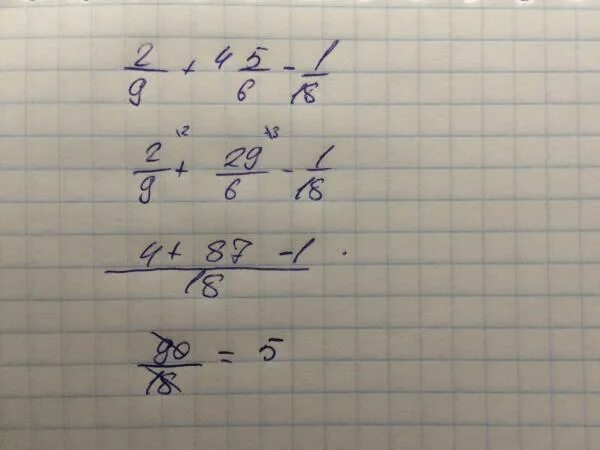 2/9 + 4 5/6 - 1/18
2/9 ·2 + 29/6 ·3 - 1/18
4 + 87 - 1 / 18
90/18 = 5